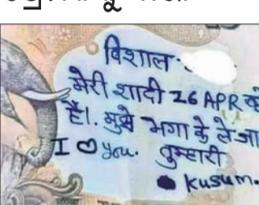 विशाल
मेरी शादी 26 APR को
है।. मुझे भगा के ले जा
I ♡ you. तुम्हारी
Kusum.